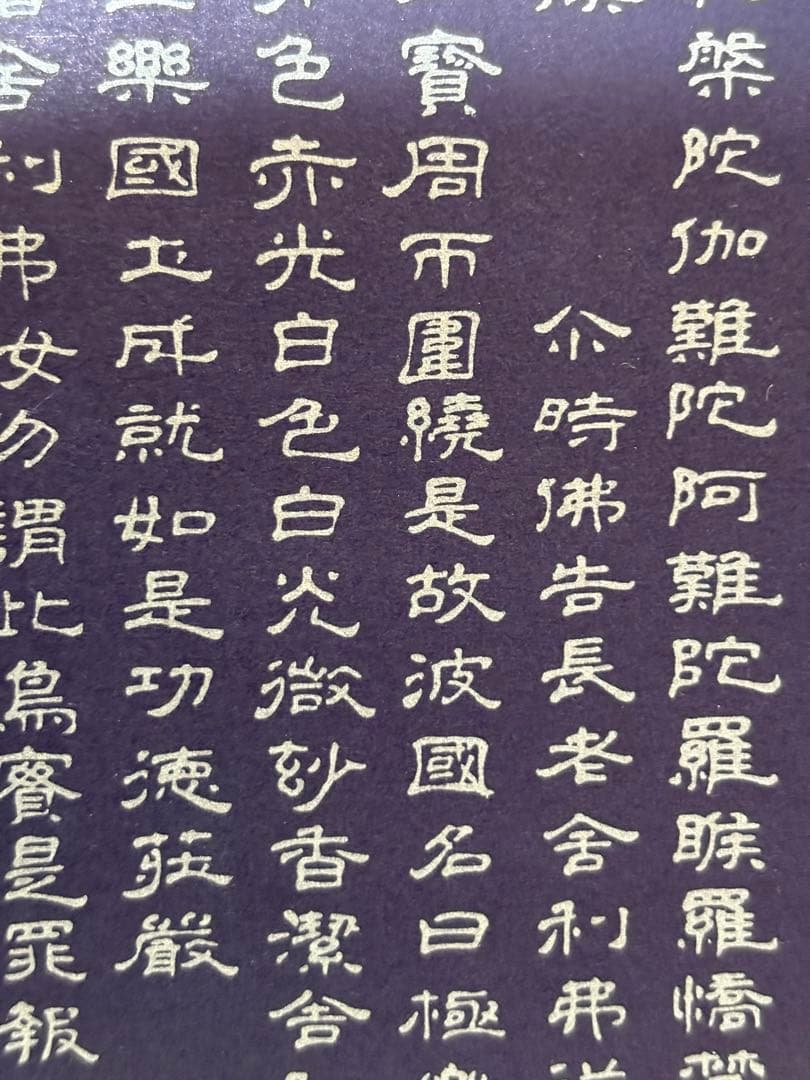 槃陀伽難陀阿難陀羅睺羅憍梵
尒時佛告長老舍利弗
寶周帀圍繞是故彼國名曰極樂
色赤光白色白光微玅香潔舍
樂國土成就如是功德莊嚴
舍利弗女勿謂此鳥實是罪報